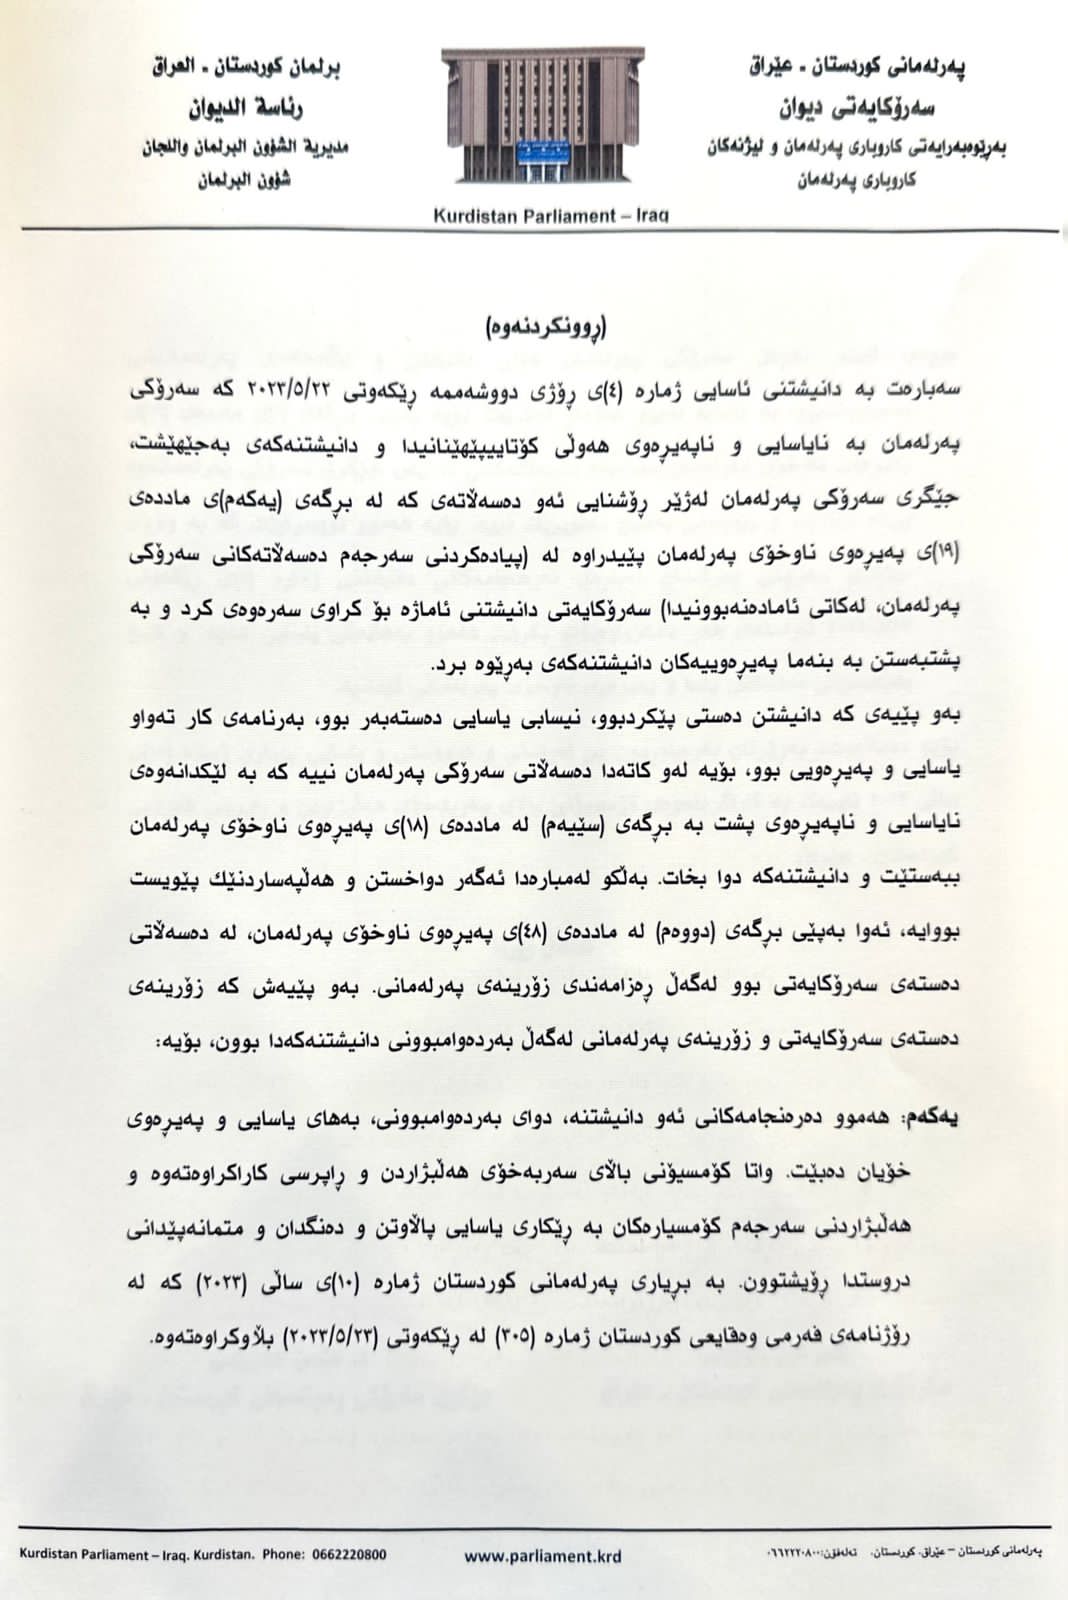 پەرلەمانی کوردستان - عێراق
سەرۆکایەتی دیوان
بەڕێوبەرایەتی کاروباری پەرلەمان و لیژنەکان
کاروباری پەرلەمان
برلمان كوردستان - العراق
رئاسة الديوان
مديرية الشؤون البرلمان واللجان
شؤون البرلمان
Kurdistan Parliament – Iraq
(ڕوونکردنەوە)
سەبارەت بە دانیشتنی ئاسایی ژمارە (٤)ی ڕۆژی دووشەممە ڕێکەوتی ٢٠٢٣/٥/٢٢ کە سەرۆکی
پەرلەمان بە نایاسایی و ناپەیڕەوی هەوڵی کۆتاییپێهێنانیدا و دانیشتنەکەی بەجێهێشت،
جێگری سەرۆکی پەرلەمان لەژێر ڕۆشنایی ئەو دەسەڵاتەی کە لە بڕگەی (یەکەم)ی ماددەی
(١٩)ی پەیڕەوی ناوخۆی پەرلەمان پێیدراوە لە (پیادەکردنی سەرجەم دەسەڵاتەکانی سەرۆکی
پەرلەمان، لەکاتی ئامادەنەبوونیدا) سەرۆکایەتی دانیشتنی ئاماژە بۆ کراوی سەرەوەی کرد و بە
پشتبەستن بە بنەما پەیڕەوییەکان دانیشتنەکەی بەڕێوە برد.
بەو پێیەی کە دانیشتن دەستی پێکردبوو، نیسابی یاسایی دەستەبەر بوو، بەرنامەی کار تەواو
یاسایی و پەیڕەویی بوو، بۆیە لەو کاتەدا دەسەڵاتی سەرۆکی پەرلەمان نییە کە بە لێکدانەوەی
نایاسایی و ناپەیڕەوی پشت بە بڕگەی (سێیەم) لە ماددەی (١٨)ی پەیڕەوی ناوخۆی پەرلەمان
ببەستێت و دانیشتنەکە دوا بخات. بەڵکو لەمبارەدا ئەگەر دواخستن و هەڵپەساردنێك پێویست
بووایە، ئەوا بەپێی بڕگەی (دووەم) لە ماددەی (٤٨)ی پەیڕەوی ناوخۆی پەرلەمان، لە دەسەڵاتی
دەستەی سەرۆکایەتی بوو لەگەڵ ڕەزامەندی زۆرینەی پەرلەمانی. بەو پێیەش کە زۆرینەی
دەستەی سەرۆکایەتی و زۆرینەی پەرلەمانی لەگەڵ بەردەوامبوونی دانیشتنەکەدا بوون، بۆیە:
یەکەم: هەموو دەرەنجامەکانی ئەو دانیشتنە، دوای بەردەوامبوونی، بەهای یاسایی و پەیڕەوی
خۆیان دەبێت. واتا کۆمسیۆنی باڵای سەربەخۆی هەڵبژاردن و ڕاپرسی کاراکراوەتەوە و
هەڵبژاردنی سەرجەم کۆمسیارەکان بە ڕێکاری یاسایی پاڵاوتن و دەنگدان و متمانەپێدانی
دروستدا ڕۆیشتوون. بە بڕیاری پەرلەمانی کوردستان ژمارە (١٠)ی ساڵی (٢٠٢٣) کە لە
ڕۆژنامەی فەرمی وەقایعی کوردستان ژمارە (٣٠٥) لە ڕێکەوتی (٢٠٢٣/٥/٢٣) بڵاوکراوەتەوە.
Kurdistan Parliament – Iraq. Kurdistan. Phone: 0662220800
www.parliament.krd
پەرلەمانی کوردستان – عێراق. کوردستان. تەلەفۆن: ٠٦٦٢٢٢٠٨٠٠